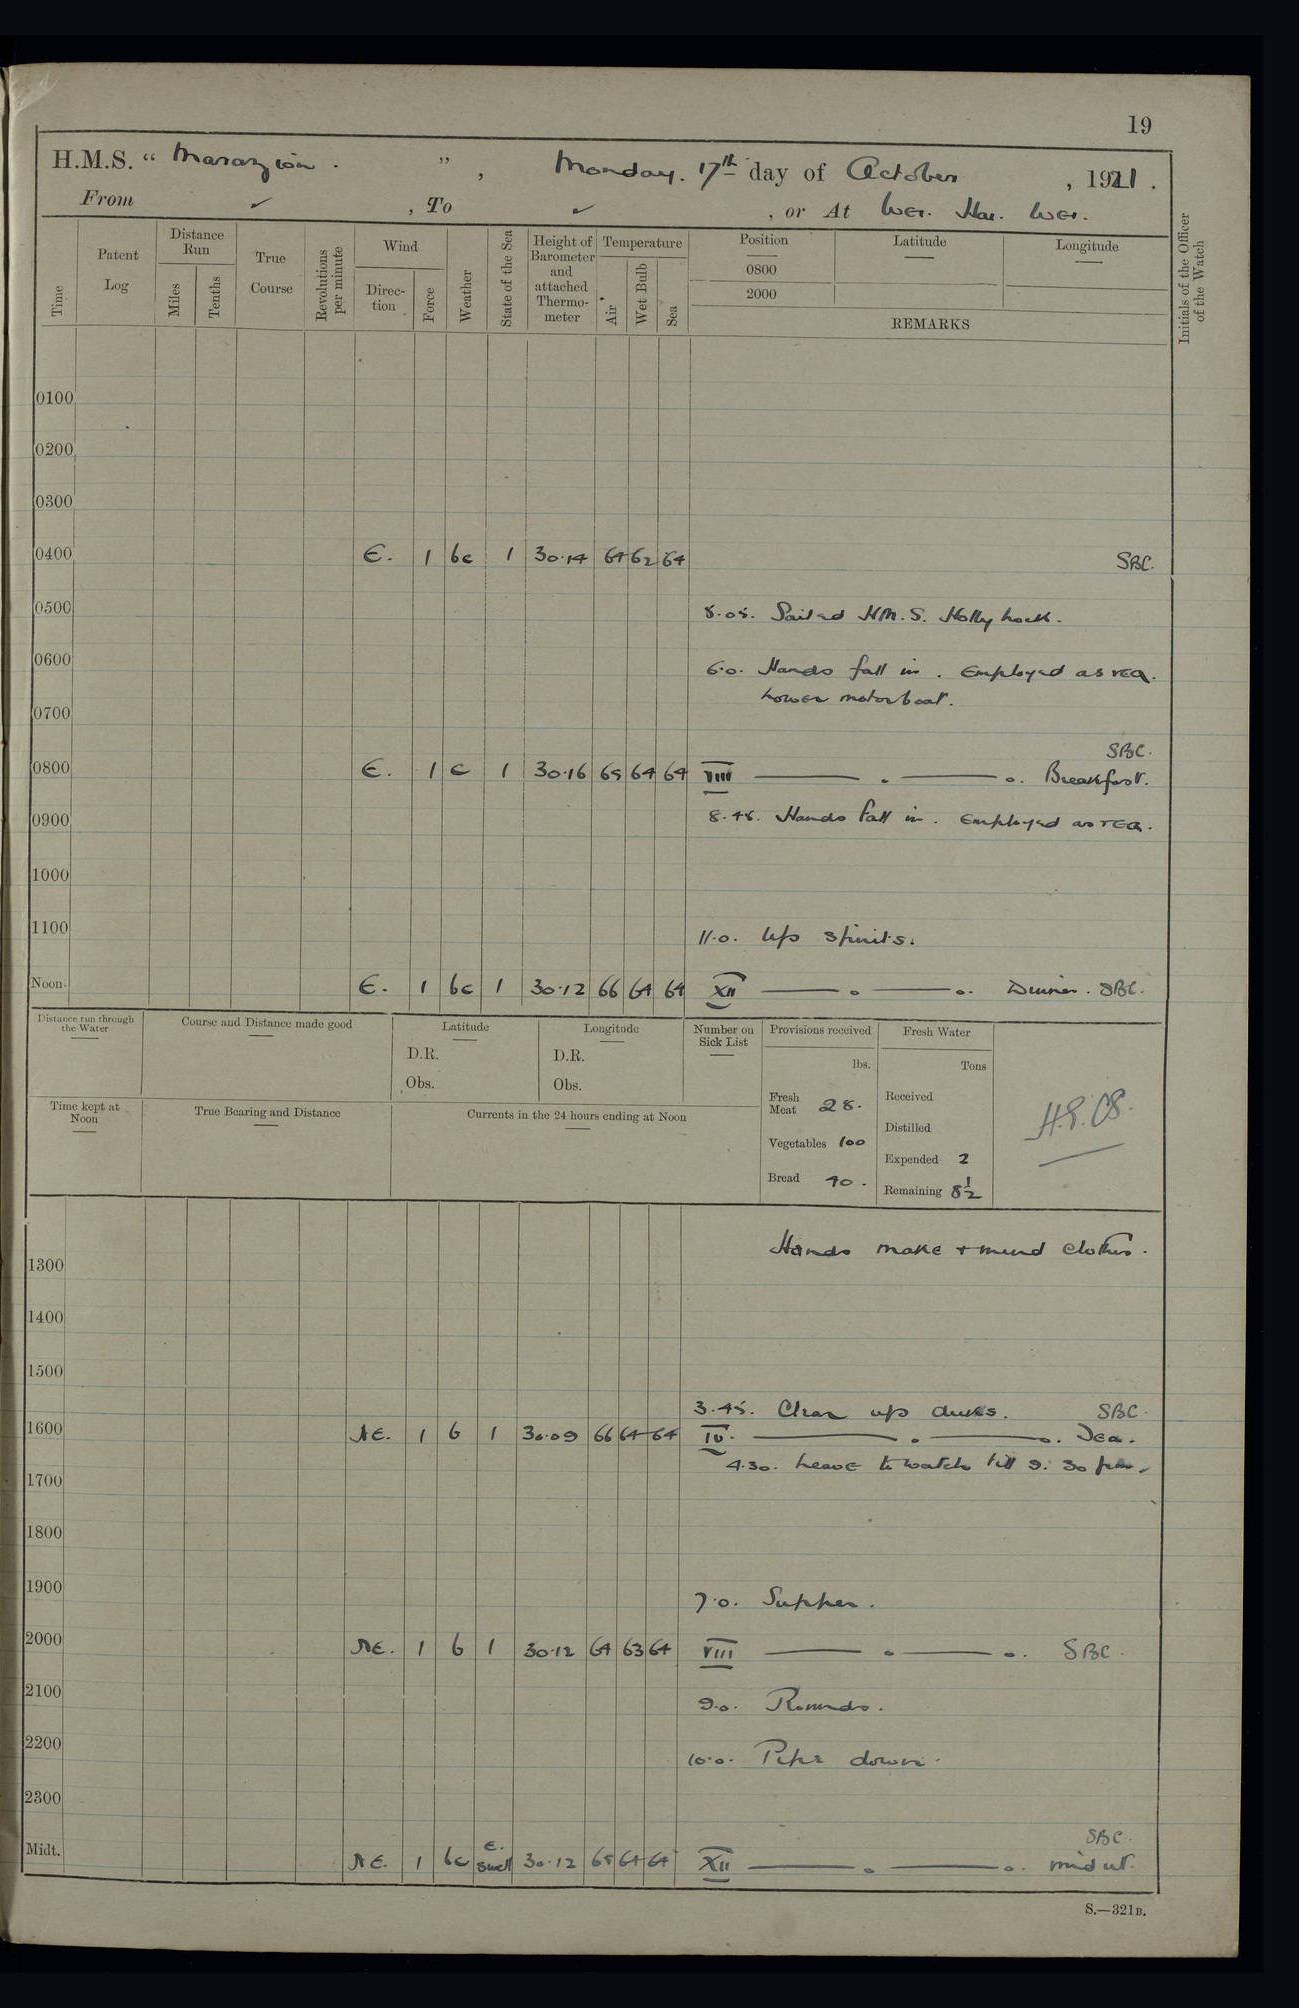 19
H.M.S. “ Marazion. ” , Monday. 17th day of October , 1921.
From ✓ , To ✓ , or At Wei. Hai. Wei.
Time
Patent Log
Distance Run
Miles
Tenths
True Course
Revolutions per minute
Wind
Direction
Force
Weather
State of the Sea
Height of Barometer and attached Thermometer
Temperature
Air
Wet Bulb
Sea
Position
0800
2000
Latitude
Longitude
REMARKS
Initials of the Officer of the Watch
0100
0200
0300
0400 E. 1 bc 1 30.14 64 62 64 SBC.
0500 Sailed H.M.S. Hollyhock.
0600 6.0. Hands fall in. Employed as req.
Lower motorboat.
0700
SBC.
0800 E. 1 c 1 30.16 65 64 64 VIII ——— . ——— o. Breakfast.
0900 8.45. Hands fall in. Employed as req.
1000
1100 11.0. Up spirits.
Noon. E. 1 bc 1 30.12 66 64 64 XII ——— o ——— o. Dinner. SBC.
Distance run through the Water
Course and Distance made good
Latitude
D.R.
Obs.
Longitude
D.R.
Obs.
Number on Sick List
Provisions received
lbs.
Fresh Meat 28.
Vegetables 100
Bread 40.
Fresh Water
Tons
Received
Distilled
Expended 2
Remaining 8½
Time kept at Noon
True Bearing and Distance
Currents in the 24 hours ending at Noon
Hands make + mend clothes.
1300
1400
1500
3.45. Clear up decks. SBC.
1600 NE. 1 b 1 30.09 66 64 64 IV. ——— o ——— o. Tea.
4.30. Leave to watch till 9.30 pm.
1700
1800
1900 7.0. Supper.
2000 NE. 1 b 1 30.12 64 63 64 VIII ——— o ——— o. SBC.
2100 9.0. Rounds.
2200 10.0. Pipe down.
2300
SBC.
Midt. NE. 1 bc E. swell 30.12 65 64 64 XII ——— o ——— o. midnt.
S.—321B.